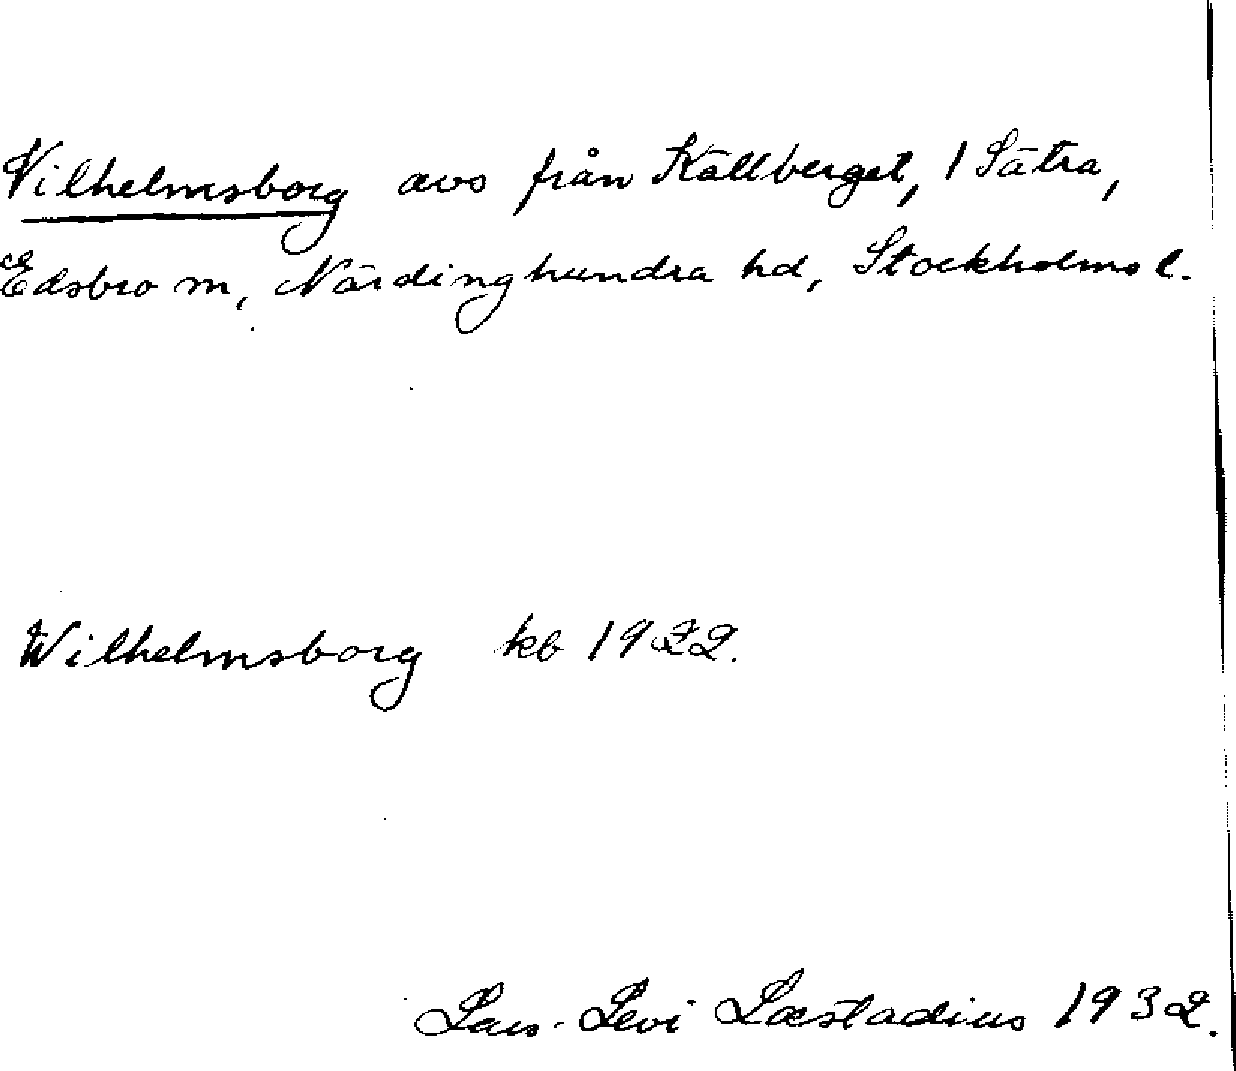 Vilhelmsborg avs från Källberget, 1 Sätra,
Edsbro sn, Närdinghundra hd, Stockholms l.
Wilhelmsborg kb 1922.
Lars-Levi Læstadius 1932.